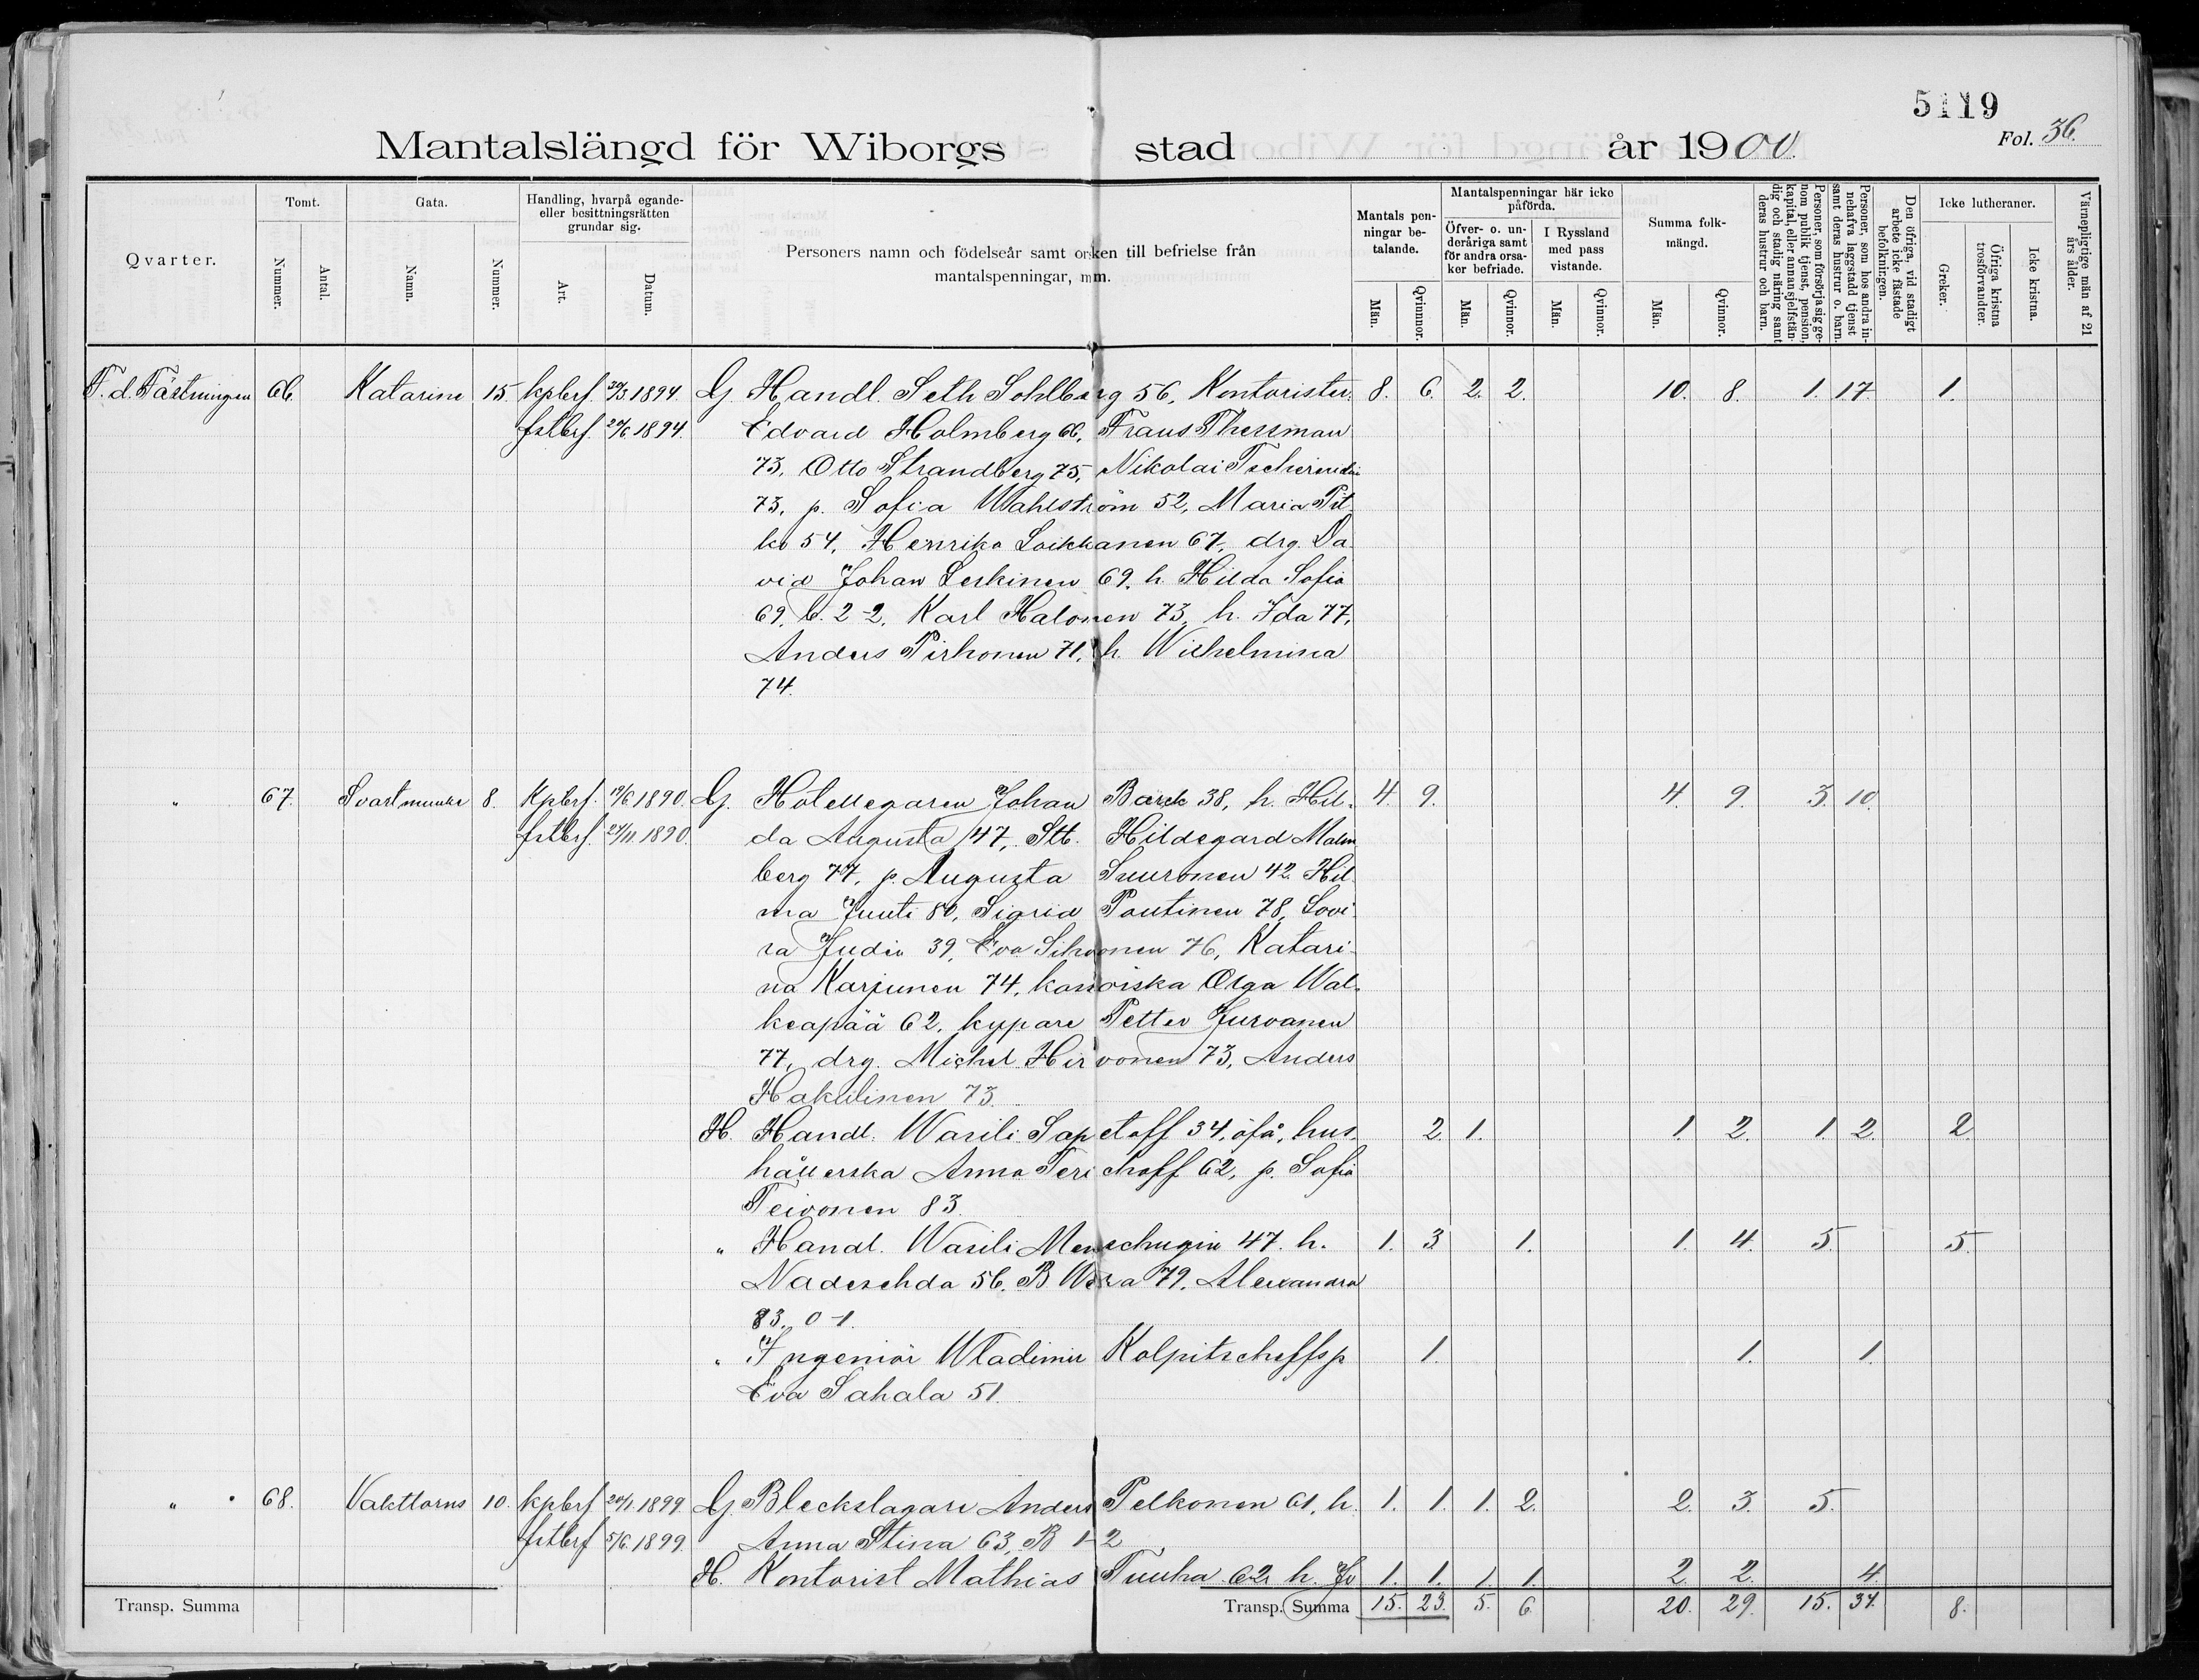 5119
Fol. 36.
Mantalslängd för Wiborgs stad år 1900.
Qvarter.
Tomt.
Nummer.
Antal.
Gata.
Namn.
Nummer.
Handling, hvarpå egande-
eller besittningsrätten
grundar sig.
Art.
Datum.
Personers namn och födelseår samt orsaken till befrielse från
mantalspenningar, m. m.
Mantals pen-
ningar be-
talande.
Män.
Qvinnor.
Mantalspenningar här icke
påförda.
Öfver- o. un-
deråriga samt
för andra orsa-
ker befriade.
Män.
Qvinnor.
I Ryssland
med pass
vistande.
Män.
Qvinnor.
Summa folk-
mängd.
Män.
Qvinnor.
Personer, som försörja sig ge-
nom publik tjenst, pension,
kapital, eller annan sjelfstän-
dig och stadig näring samt
deras hustrur och barn.
Personer, som hos andra in-
nehafva laggstadd tjenst
samt deras hustrur o. barn.
Den öfriga, vid stadigt
arbete icke fästade
befolkningen.
Icke lutheraner.
Greker.
Öfriga kristna
trosförvandter.
Icke kristna.
Värnepligtige män af 21
års ålder.
F. d. Fästningen 66. Katarine 15. kpbrf. 1894. G. Handl. Seth Sohlberg 56, Kontorister: 8. 6. 2. 2. 10. 8. 1. 17. 1.
fstbrf. 1894. Edvard Holmberg 66, Frans Thessman
73, Otto Strandberg 75, Nikolai
73, p. Sofia Wahlström 52, Maria Pit-
ko 54, Henrika Loikkanen 67, drg. Da-
vid Johan Leskinen 69, h. Hilda Sofia
69, b. 2-2, Karl Halonen 73, h. Ida 77,
Anders Pirhonen 71, h. Wilhelmina
74.
" 67. Svartmunke 8. Kpbrf. 1890. G. Hotellegaren Johan Barck 38, h. Hil- 4. 9. 4. 9. 3. 10.
fstbrf. 1890. da Augusta 47, Stb. Hildegard Malm-
berg 77, p. Augusta Suuronen 42, Hil-
ma Juuti 80, Sigrid Poutinen 78, Lovi-
sa Judin 39, Eva Sihvonen 76, Katari-
na Karjunen 74, Olga Wal-
keapää 62, kypare Petter Jurvanen
77, drg. Michel Hirvonen 73, Anders
Hakulinen 73.
H. Handl. Wasili Sapetoff 34, öfå, hus- 2. 1. 1. 2. 1. 2. 2.
hållerska Anna Terichoff 62, p. Sofia
Teivonen 83.
" Handl. Wasili Menschugin 47. h. 1. 3. 1. 1. 4. 5. 5.
Nadeschda 56. B Wera 79. Alexandra
83, 0-1.
" Ingeniör Wladimir Kolpitscheffs p 1. 1. 1.
Eva Sahala 51.
" 68. Vakttorns 10. kpbrf 1899. G. Bleckslagare Anders Pelkonen 61, h. 1. 1. 1. 2. 2. 3. 5.
fstbrf 5/6.1899. Anna Stina 63, B 1-2
H. Kontorist Mathias Tuuha 62 h. Jo 1. 1. 1. 1. 2. 2. 4.
Transp. Summa Transp. Summa 15. 23. 5. 6. 20. 29. 15. 34. 8.